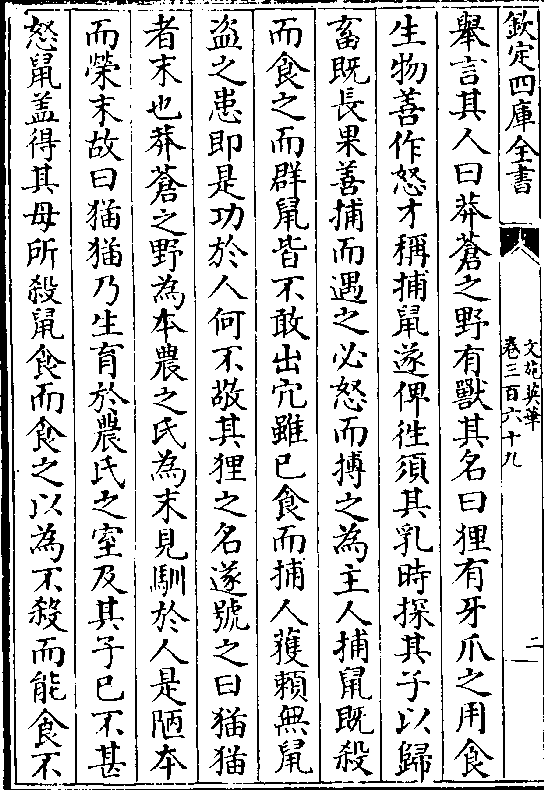 欽定四庫全書
文苑英華
卷三百六十九
二
舉言其人曰莽蒼之野有獸其名曰狸有牙爪之用食
生物善作怒才稱捕鼠遂俾徃須其乳時探其子以歸
畜既長果善捕而遇之必怒而搏之為主人捕鼠既殺
而食之而群鼠皆不敢出穴雖已食而捕人獲賴無鼠
盗之患即是功於人何不敬其狸之名遂號之曰猫猫
者末也莽蒼之野為本農之氏為末見馴於人是陋本
而榮末故曰猫猫乃生育於農氏之室及其子已不甚
怒鼠盖得其母所殺鼠食而食之以為不殺而能食不